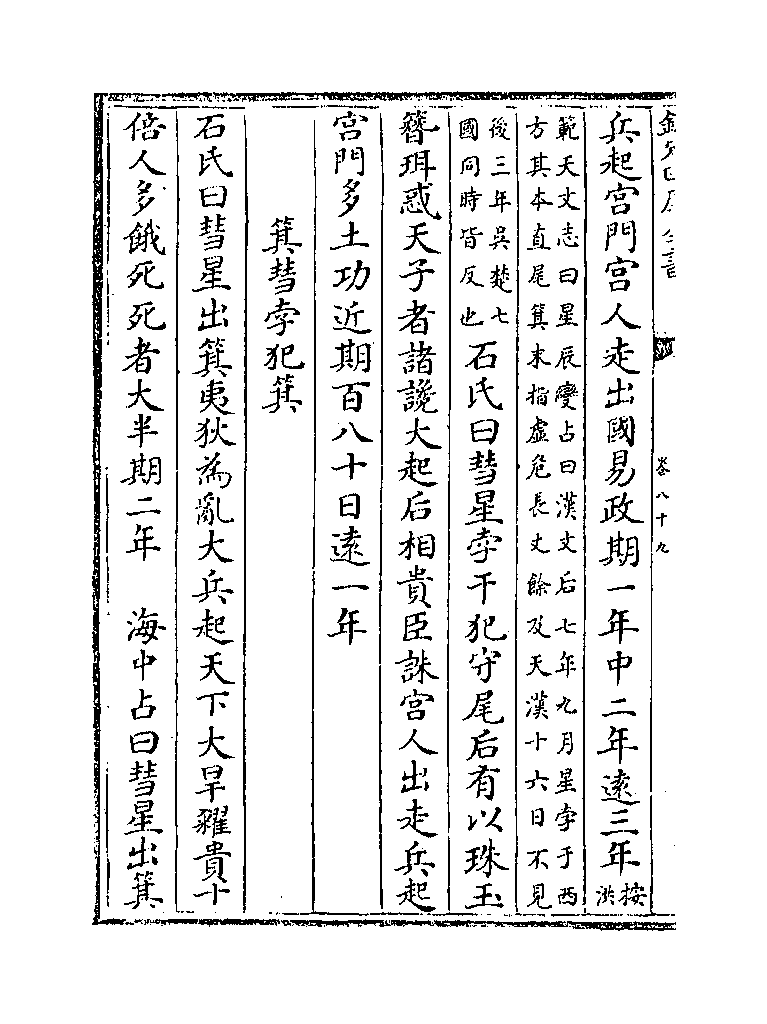 欽定四庫全書 卷八十九
兵起宫門宫人走出國易政期一年中二年逺三年按洪
範天文志曰星辰變占曰漢文后七年九月星孛于西
方其本直尾箕末指虛危長丈餘及天漢十六日不見
後三年吳楚七
國同時皆反也
石氏曰彗星孛干犯守尾后有以珠玉
簪珥惑天子者諸讒大起后相貴臣誅宫人出走兵起
宫門多土功近期百八十日逺一年
箕彗孛犯箕
石氏曰彗星出箕夷狄為亂大兵起天下大旱糴貴十
倍人多餓死死者大半期二年　海中占曰彗星出箕